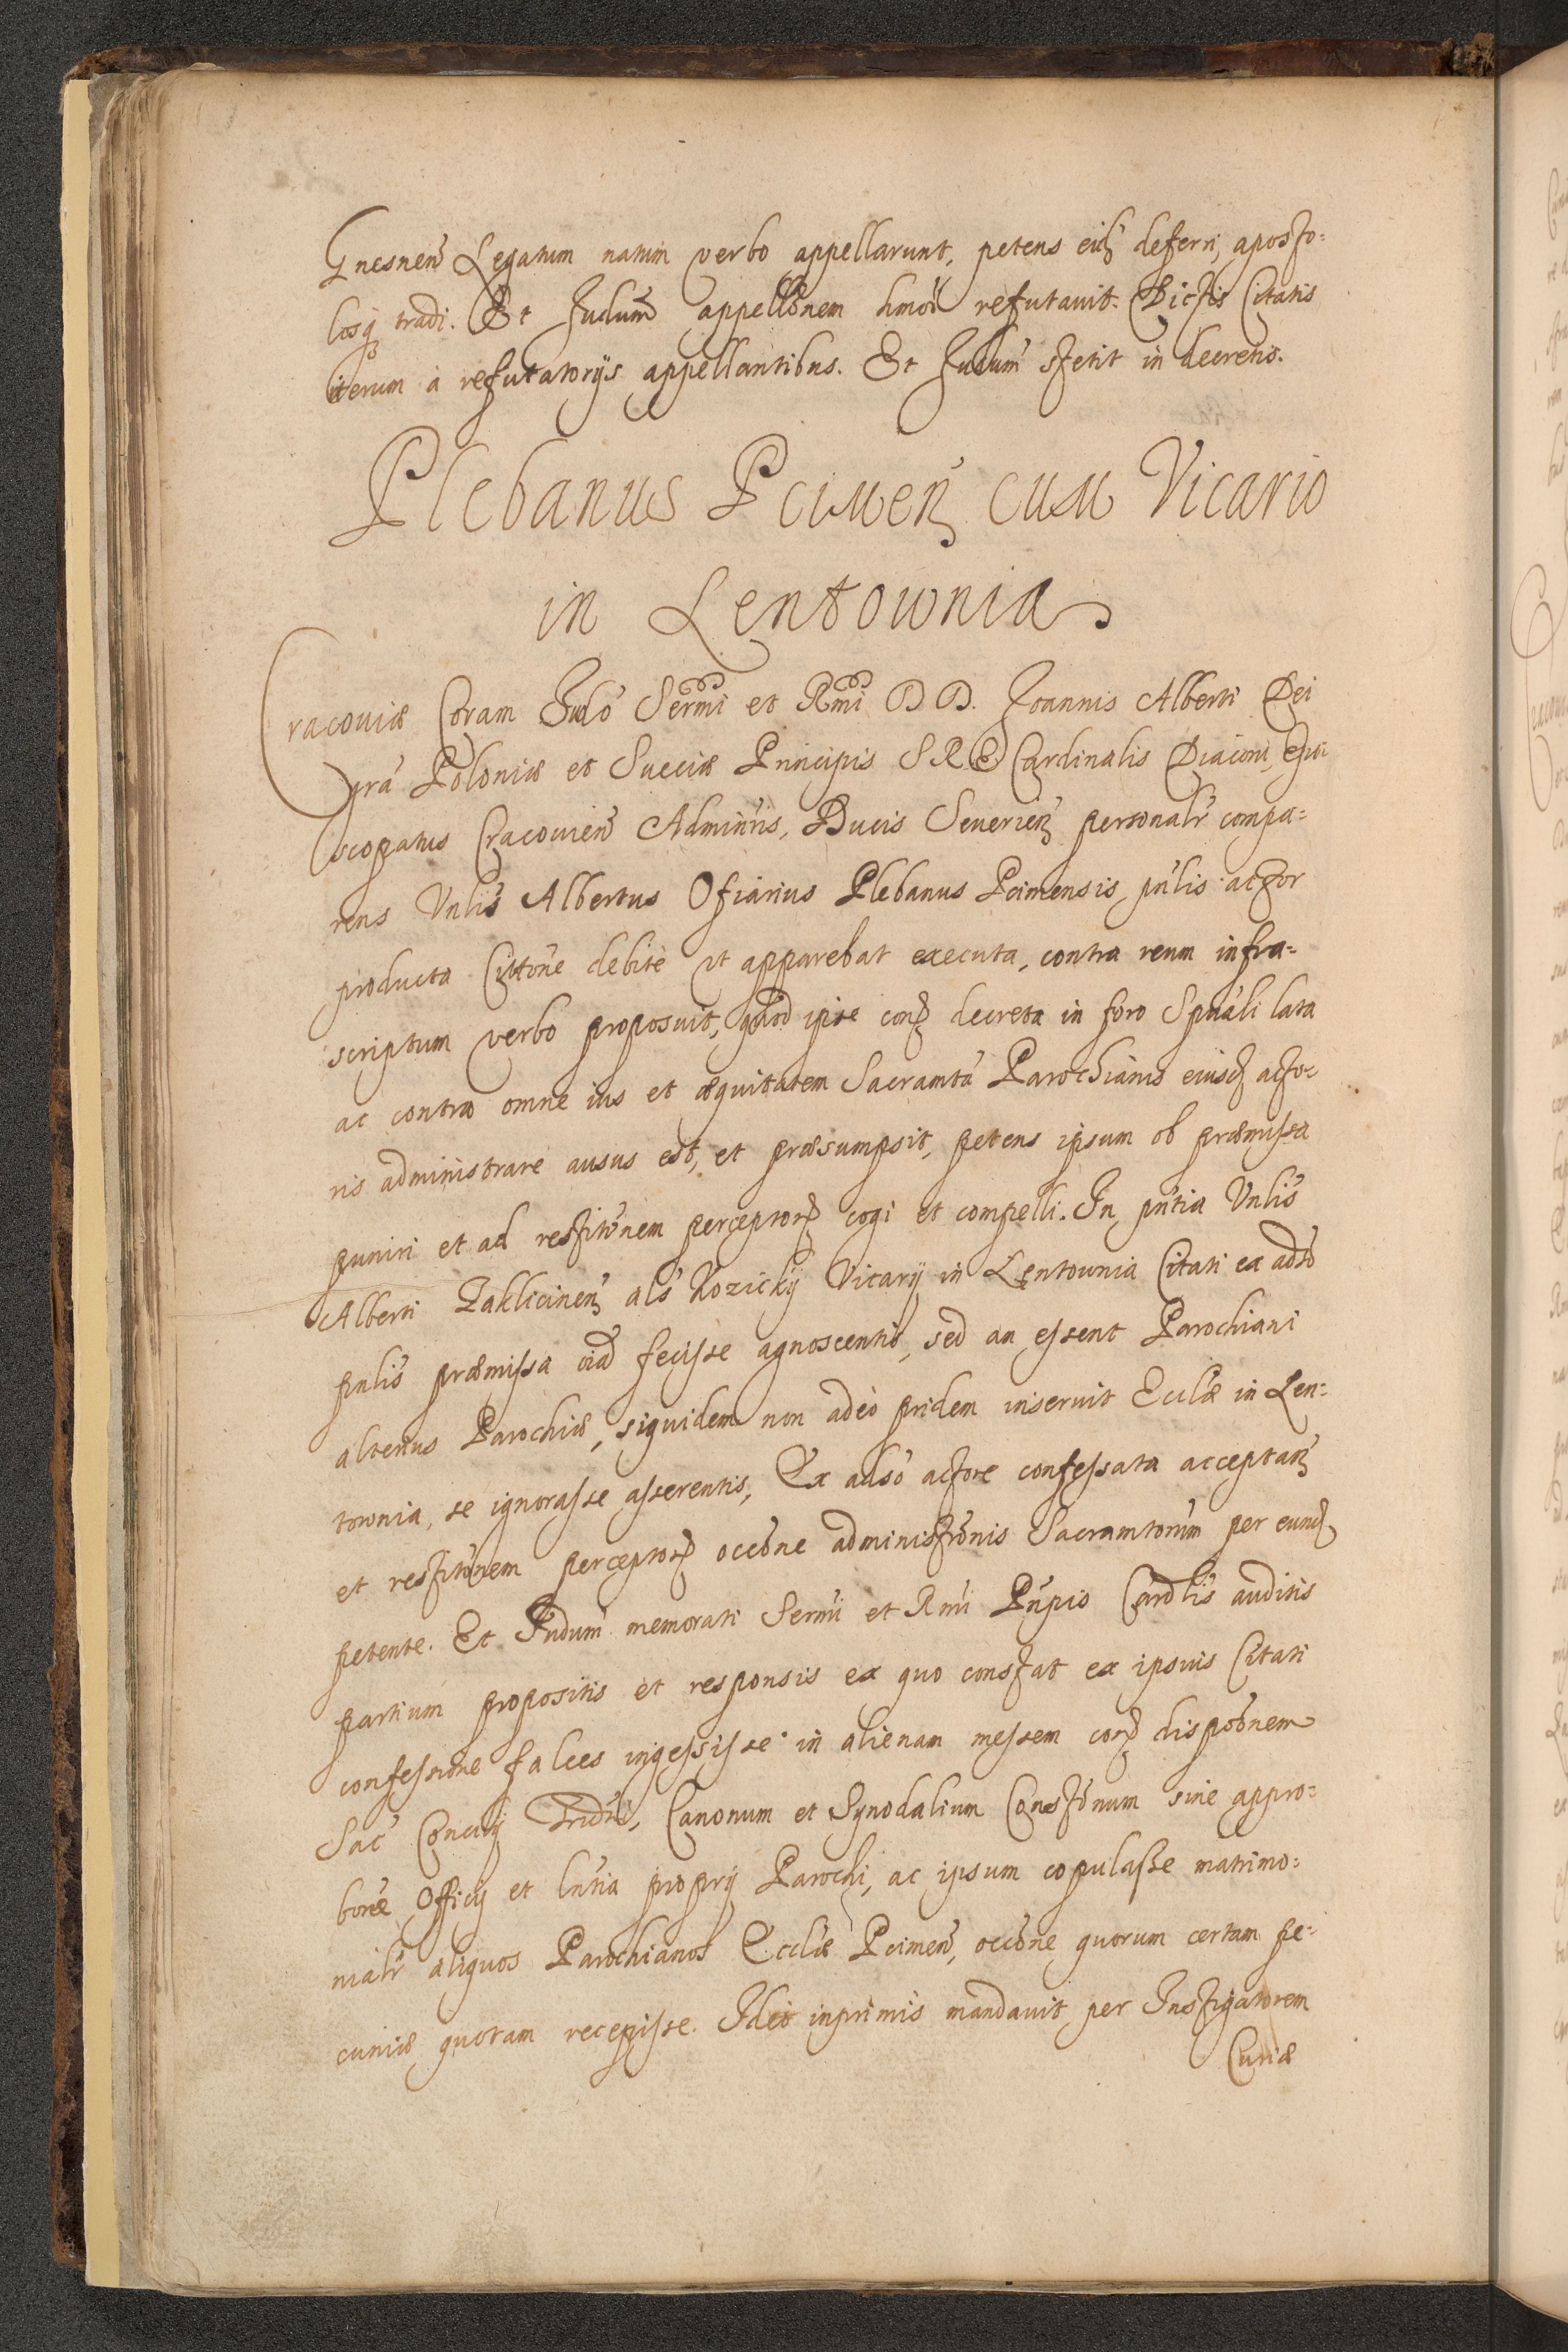 Gnesnen̄ Legatum natum verbo appellarunt, petens eid̄ deferri, aposto-
losq; tradi. Et Judium̄ appellōnem hmōi refutauit. Dictis Citatis
iterum à refutatorijs appellantibus. Et Judium̄ stetit in decretis.
Plebanus Pcimen̄ cum Vicario
in Lentownia
Cracouiæ Coram Judō Sermi et Rmi D D. Joannis Alberti Dei
grā Poloniæ et Sueciæ Principis S R E Cardinalis Diaconi, Epi-
scopatus Cracouien̄ Adminr̄is, Ducis Seuerien̄ personalr̄ compa-
rens Vnlis̄ Albertus Ofiarius Plebanus Pcimensis pn̄lis actor
producta Cittōne debitè ut apparebat executa, contra reum infra-
scriptum verbo proposuit, quod ipse con̄ decreta in foro Spūali lata
ac contra omne ius et æquitatem Sacramtā Parochianis eiusd̄ acto-
ris administrare ausus est, et præsumpsit, petens ipsum ob præmissa
puniri et ad restitōnem perceptor̄ cogi et compelli. In pn̄tia Vnlis̄
Alberti Zaklicinen̄ als̄ Kozickÿ Vicarij in Lentownia Citati ex adsō
pnlis̄ præmissa oīa fecisse agnoscentis, sed an essent Parochiani
alterius Parochiæ, siquidem non adeò pridem inseruit Ecclæ in Len-
townia, se ignorasse asserentis, Ex adsō actore confessata acceptan̄
et restitōnem perceptor̄ occōne administrōnis Sacramtorum per eund̄
petente. Et Judium̄ memorati Sermi et Rmi Pn̄pis Cardlis̄ auditis
partium propositis et responsis ex quo constat ex ipsius Citati
confessione falces ingessisse in alienam messem con̄ dispōnem
Sac̄ Concilij Tridn̄i, Canonum et Synodalium Constōnum sine appro-
bōne Officij et lnt̄ia proprij Parochi, ac ipsum copulasse matrimo-
nialr̄ aliquos Parochianos Ecclæ Pcimen̄, occōne quorum certam pe-
cuniæ quotam recepisse. Ideò inprimis mandauit per Instigatorem
Curiæ